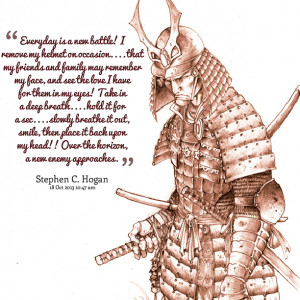 “ Everyday is a new battle! I
remove my helmet on occasion....that
my friends and family may remember
my face, and see the love I have
for them in my eyes! Take in
a deep breath....hold it for
a sec.....slowly breathe it out,
smile, then place it back upon
my head!! Over the horizon,
a new enemy approaches. ”
Stephen C. Hogan
18 Oct 2013 10:47 am